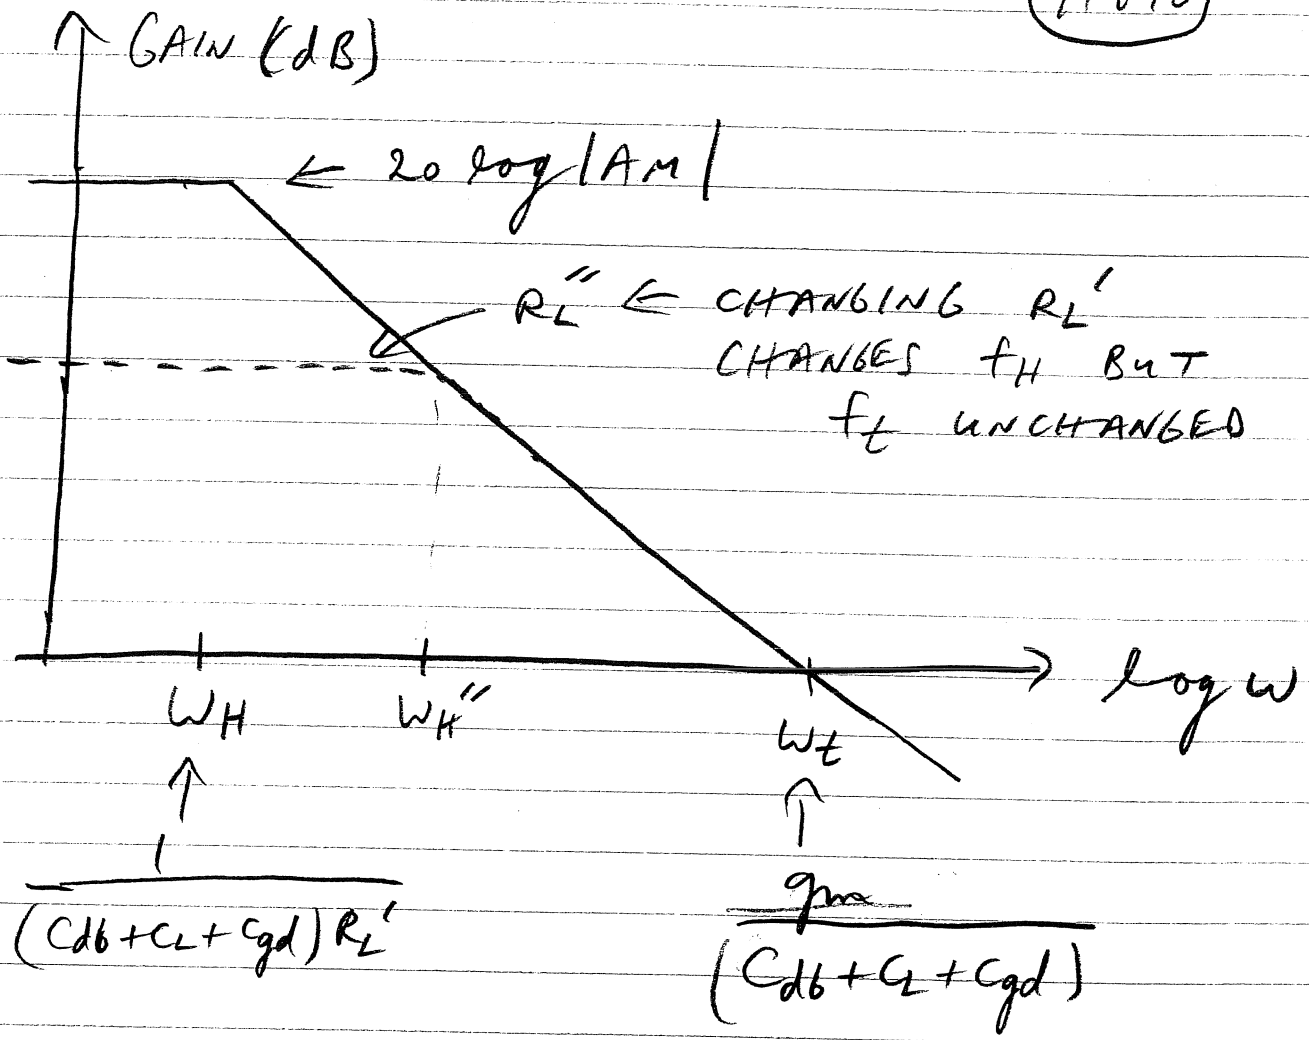 GAIN (dB)
← 20 log |AM|
RL'' ← CHANGING RL'
CHANGES fH BUT
ft UNCHANGED
ωH
ωH''
ωt
log ω
↑
1
(Cdb + CL + Cgd) RL'
↑
gm
(Cdb + CL + Cgd)